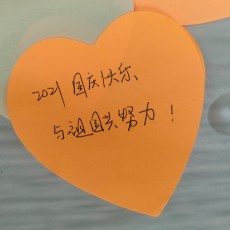 2021 国庆快乐、
与祖国共努力！